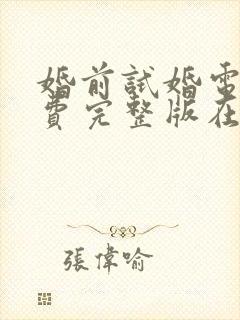 婚前試婚電
費完整版在
張偉喻